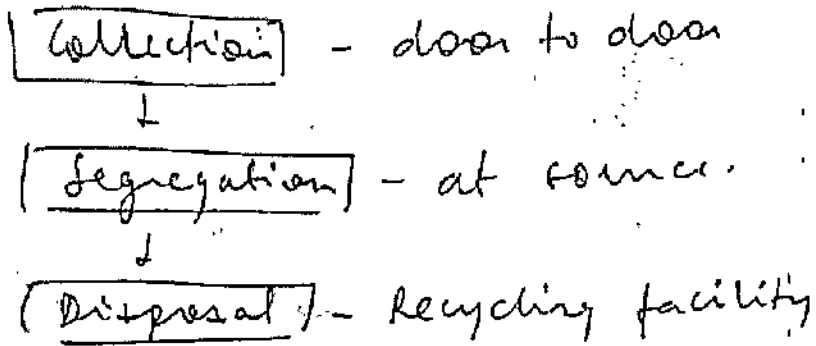 Collection - door to door
↓
Segregation - at source.
↓
Disposal - Recycling facility